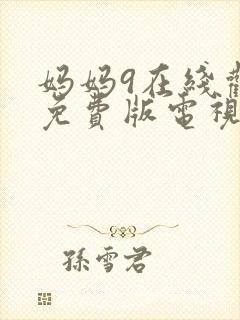 妈妈9在线觀
免費版電視
孫雪君